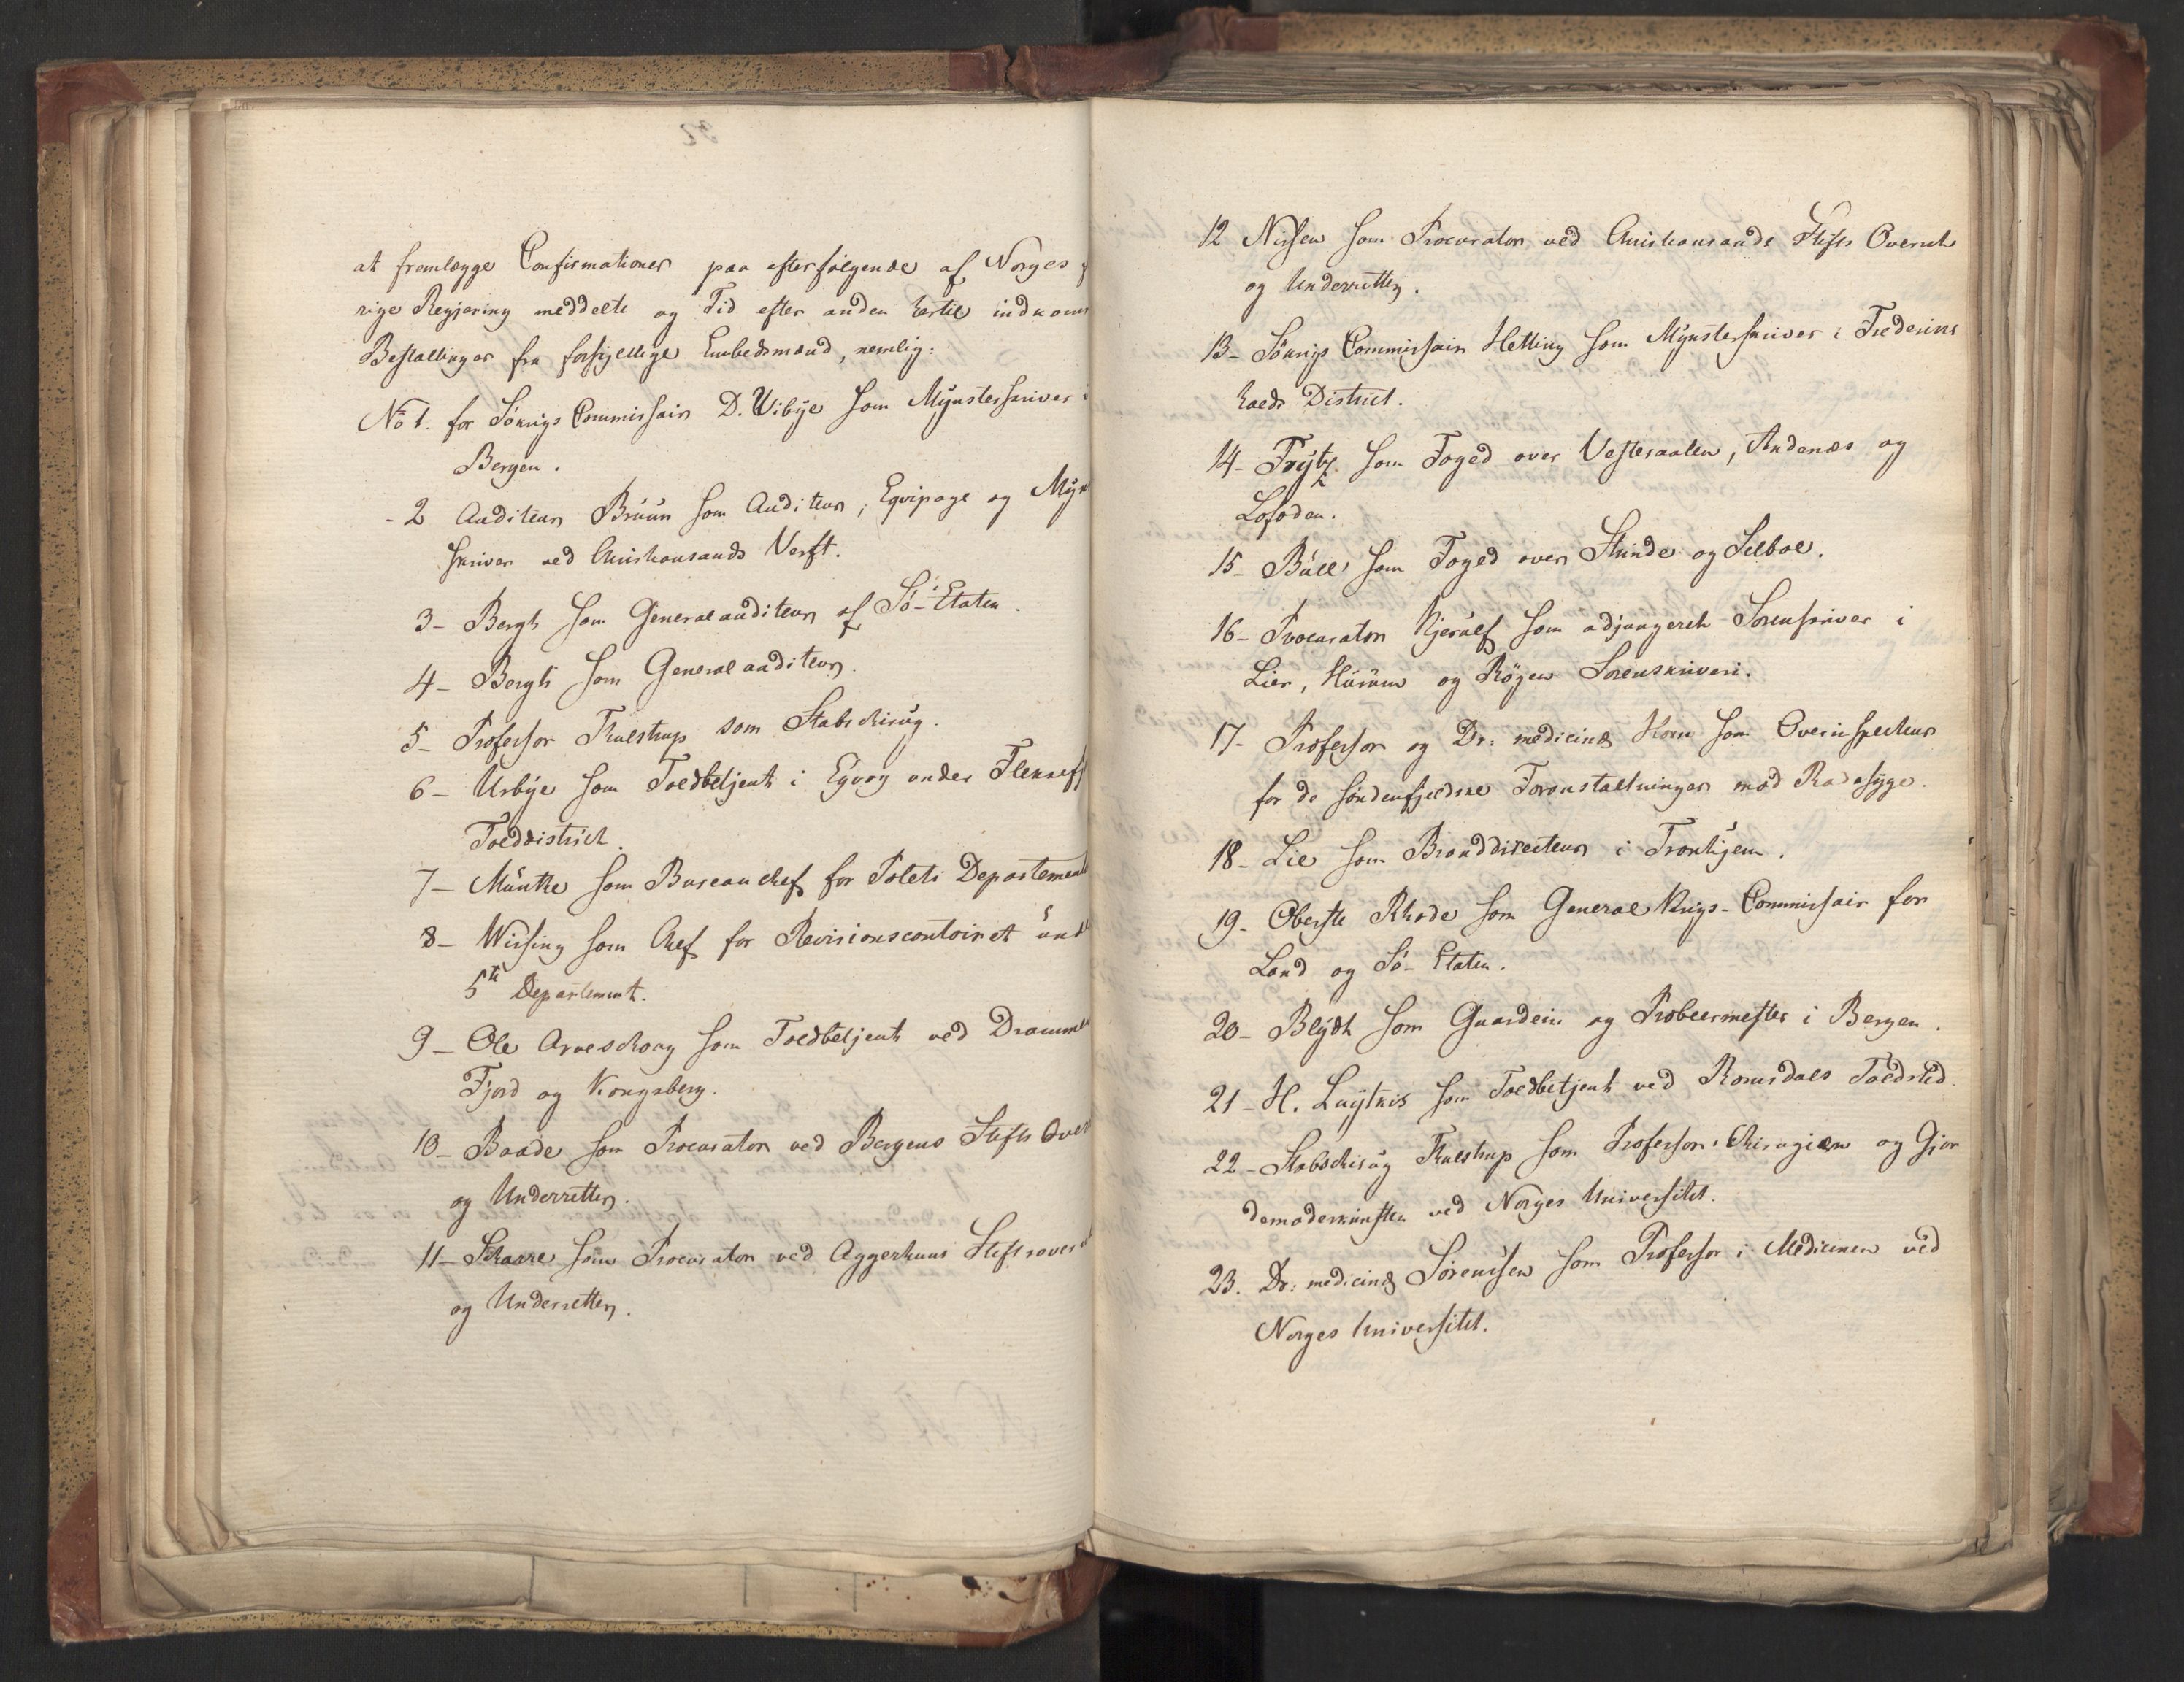 at fremlægge Confirmationer paa efterfølgende af Norges
rige Regjering meddelte og Tid efter anden hertil indkom
Bestallinger for forskjellige Embedsmænd, nemlig:
No 1. for Søkrigs Commissair D. Wibye som Mynsterskriver i
Bergen.
- 2 Auditeur Bruun som Auditeur, Eqvipage og Myn
skriver ved Christiansands Verft.
3 - Bergh som Generalauditeur af Sø-Etaten.
4 - Bergh som Generalauditeur.
5 - Professor Thulstrup som Stabschirug.
6 - Urbye som Toldbetjent i Egvog under Flekkef
Tolddistrict.
7 - Münthe som Bureauchef for Politi Departement
8 - Wissing som Chef for Revisionscontoiret und
5te Departement.
9 - Ole Arveschoug som Toldbetjent ved Dramme
Fjord og Kongsberg.
10 - Baade som Procurator ved Bergens Stifts Over
og Underretter.
11 - Skarre som Procurator ved Aggerhuus Stiftsover
og Underretter.
12 Nissen som Procurator ved Christiansands Stifts Overret
og Underretter.
13 - Søkrigs Commissair Hetting som Mynsterskriver i Frederiks
halds District.
14 - Frytz som Foged over Vesteraalen, Andenæs og
Lofoden.
15 - Bull som Foged over Strinde og Selboe.
16 - Procurator Kjerulf som adjungeret Sorenskriver i
Lier, Hurum og Røgen Sorenskriveri.
17 - Professor og Dr: medicinæ Horn som Overinspecteur
for de søndenfjeldske Foranstaltninger mod Radesyge.
18 - Lie som Branddirecteur i Tronhjem.
19 - Oberste Rhode som General Krigs-Commissair for
Land og Sø-Etaten.
20 - Blydt som Guardein og Probeermester i Bergen.
21 - H. Luytkis som Toldbetjent ved Romsdals Toldsted.
22 - Stabschirug Thulstrup som Professor i Chirugien og Gjor
demoderkunsten ved Norges Universitet.
23. Dr: medicinæ Sørenssen som Professor i Medicinen ved
Norges Universitet.